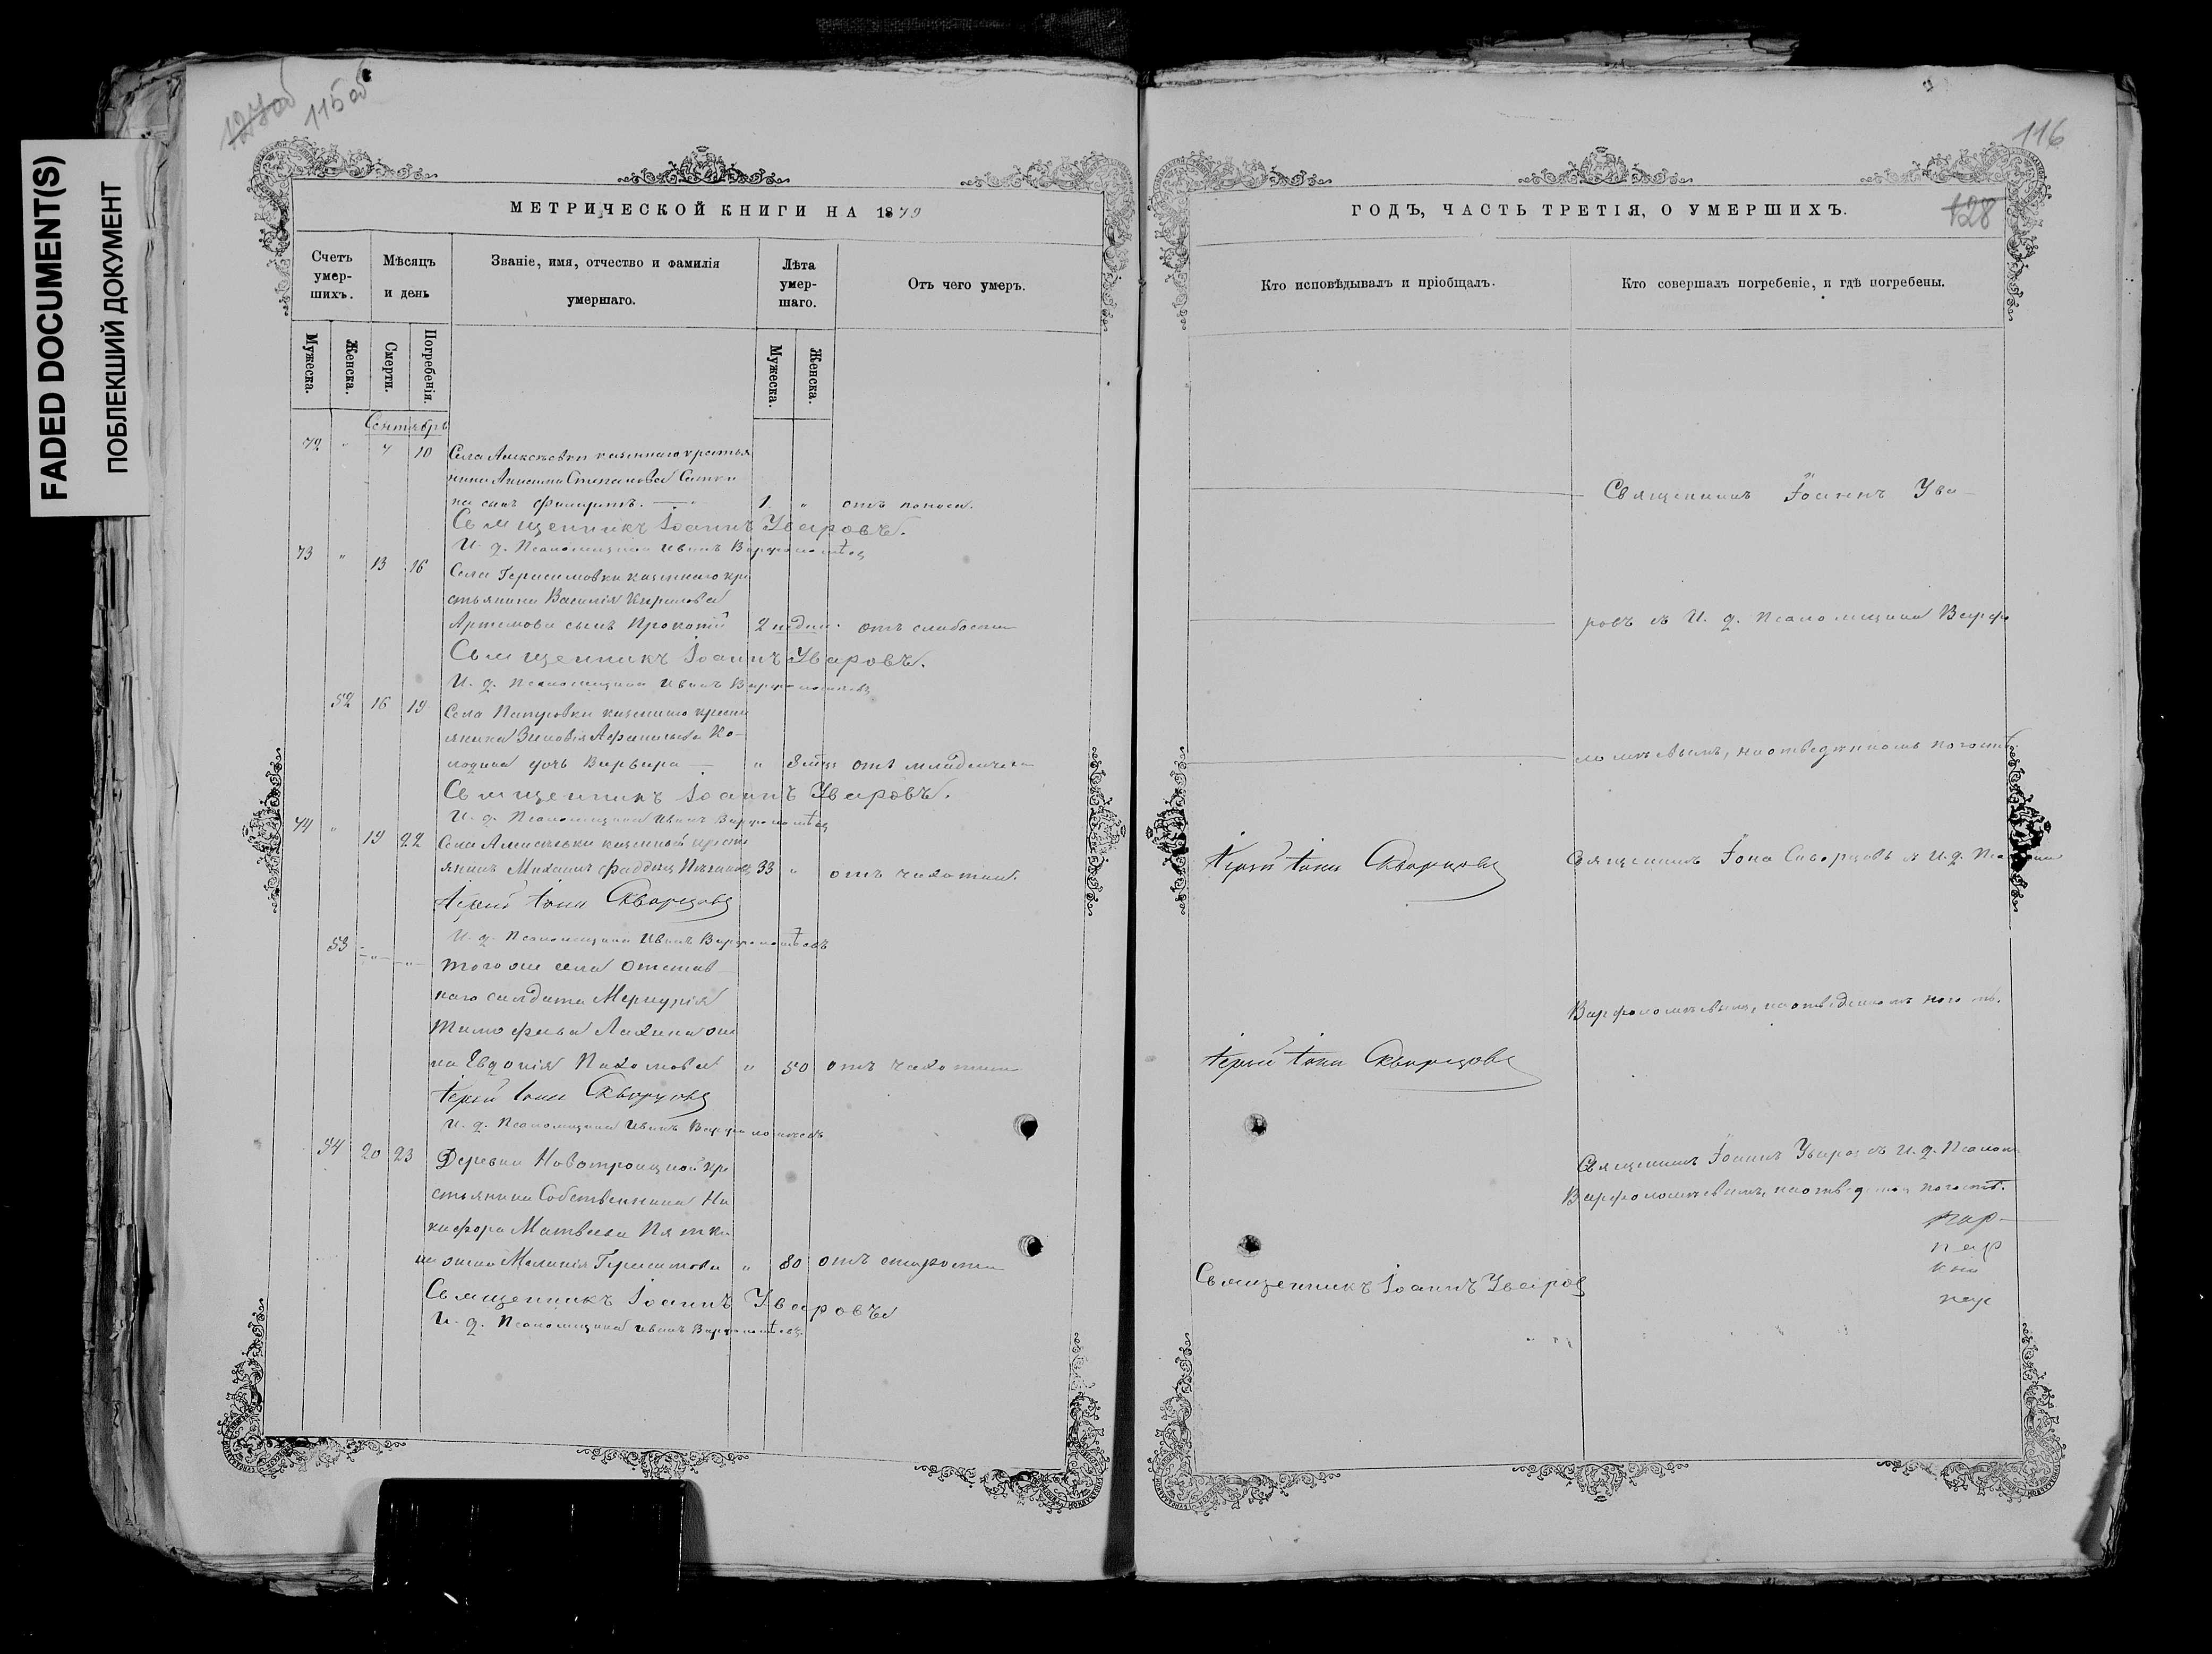 FADED DOCUMENT(S)
ПОБЛЕКШИЙ ДОКУМЕНТ
127об
115об
МЕТРИЧЕСКОЙ КНИГИ НА 1879
Счетъ умер-шихъ.
Мѣсяцъ и день
Званіе, имя, отчество и фамилія умершаго.
Лѣта умер-шаго.
Отъ чего умеръ.
Мужеска.
Женска.
Смерти.
Погребенія.
Мужеска.
Женска.
Сентябрь
72 " 7 10 Села Алексѣевки казеннаго крестья
нина Анисима Степанова
на сынъ Филиппъ. 1 " отъ поноса.
Священникъ Іоаннъ Уваровъ.
И. д. Псаломщика Иванъ Варфоломѣев
73 " 13 16
Села Герасимовки казеннаго кре
стьянина Василія Кирилова
Артемова сынъ Прокопій 2 недѣли. отъ слабости
Священникъ Іоаннъ Уваровъ.
И. д. Псаломщика Иванъ Варфоломѣевъ
52 16 19 Села казеннаго крестья
янина Зиновія Афанасьева Ко-
лодина дочь Варвара " 8 мѣс. отъ младенческ
Священникъ Іоаннъ Уваровъ.
И. д. Псаломщика Иванъ Варфоломѣев
74 " 19 22 Села Алексѣевки казенный кресть
янинъ Михаилъ Фаддеев 33 " отъ чахотки.
Іерей Іона Скворцовъ
И. д. Псаломщика Иванъ Варфоломѣевъ
53 - " - " -
Того же села отстав
наго солдата Меркурія
Тимофеева Лахина же
на Евдокія Пахомова " 50 отъ чахотки
Іерей Іона Скворцовъ
И. д. Псаломщика Иванъ Варфоломѣевъ
54 20 23 Деревни Новотроицкой кре
стьянина Собственника Ни
кифора Матвеева Пятки
на жена Меланія Герасимова " 80 отъ старости
Священникъ Іоаннъ Уваровъ
И. д. Псаломщика Иванъ Варфоломѣевъ.
116
128
ГОДЪ, ЧАСТЬ ТРЕТІЯ, О УМЕРШИХЪ.
Кто исповѣдывалъ и пріобщалъ.
Кто совершалъ погребеніе, и гдѣ погребены.
Священникъ Іоаннъ Ува
ровъ съ И. д. Псаломщика Варфо
ломѣевымъ, на отведенномъ погостѣ.
Іерей Іона Скворцовъ
Священникъ Іона Скворцовъ съ И. д. Псаломщика
Варфоломѣевымъ, на отведенномъ погостѣ.
Іерей Іона Скворцовъ
Священникъ Іоаннъ Уваровъ съ И. д. Псалом
Варфоломѣевымъ, на отведенном погостѣ.
Священникъ Іоаннъ Уваров